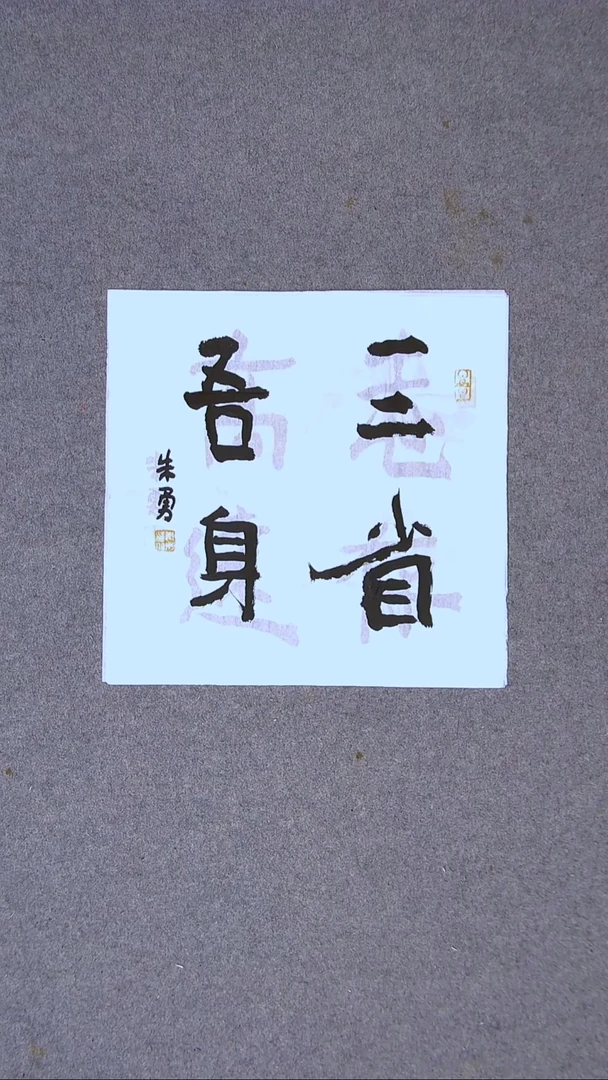 三省
吾身
朱勇